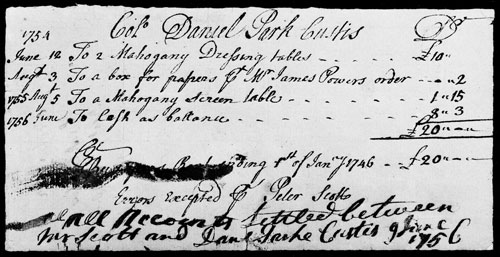 1754 Colo. Daniel Park Custis Dr
June 12 To 2 Mahogany Dressing tables - - - - £10 " "
Augt 3 To a box for papers pr Mr James Powers order - - " " 2
1755 Augt 5 To a Mahogany screen table - - - - 1 " 15
1756 June To Cash as ballance - - - - 8 " 3
£20 " "
Cr
ending 1st of Janry 1746 - - £20 " "
Errors Excepted pr Peter Scott
all Accounts settled between
Mr Scott and Danl Parke Custis 9 June
1756